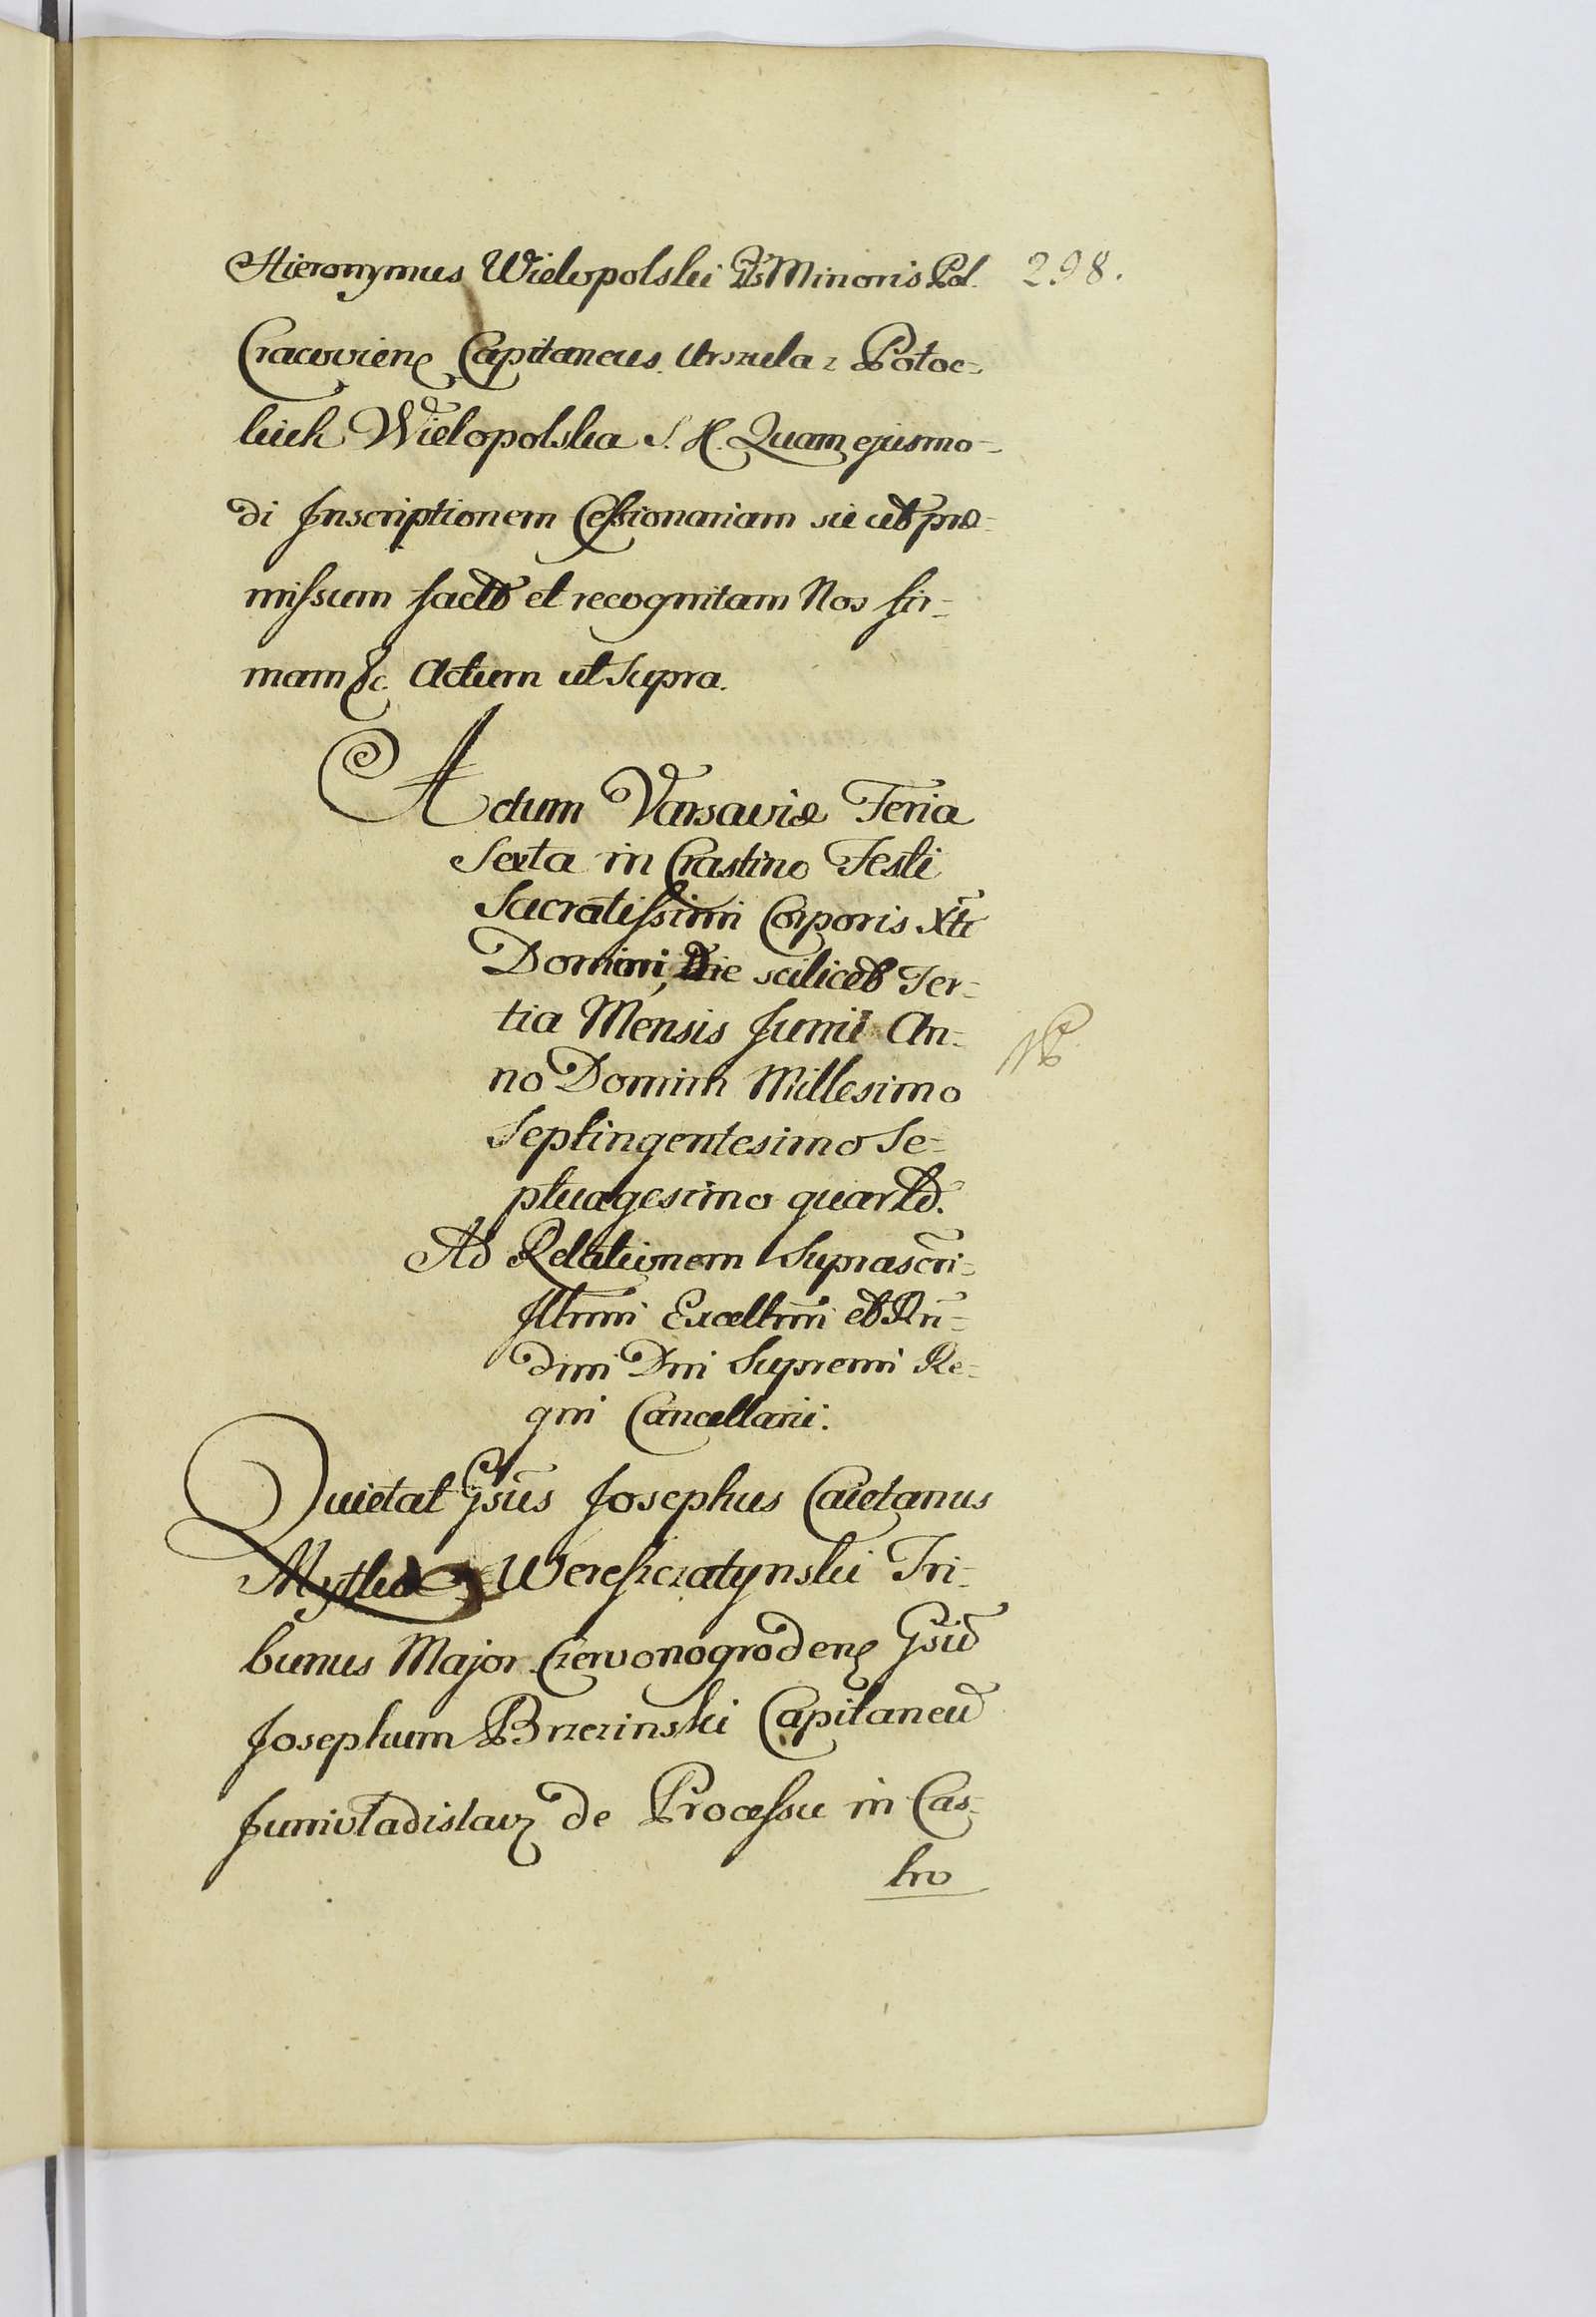 Hieronymus Wielopolski Gr̃lis Minoris Pol. 298.
Cracovien Capitaneus. Urszula z Potoc=
kich Wielopolska S. H. Quam ejusmo=
di Inscriptionem Cessionariam sic ut præ=
missum factã et recognitam Nos fir=
mam &c. Actum ut Supra.
Actum Varsaviæ Feria
Sexta in Crastino Festi
Sacratissimi Corporis Xti
Domini, Die scilicet Ter=
tia Mensis Junii An=
no Domini Millesimo
Septingentesimo Se=
ptuagesimo quarto.
Ad Relationem Suprascri=
Illrmi Excellmi et Rñ=
dmi Dni Supremi Re=
gni Cancellarii.
Quietat Gsus Josephus Caietanus
Mytko Wereszczatynski Tri=
bunus Major Czerwonogroden Gsũ
Josephum Brzezinski Capitaneũ
Junivladislav de Processu in Cas=
tro